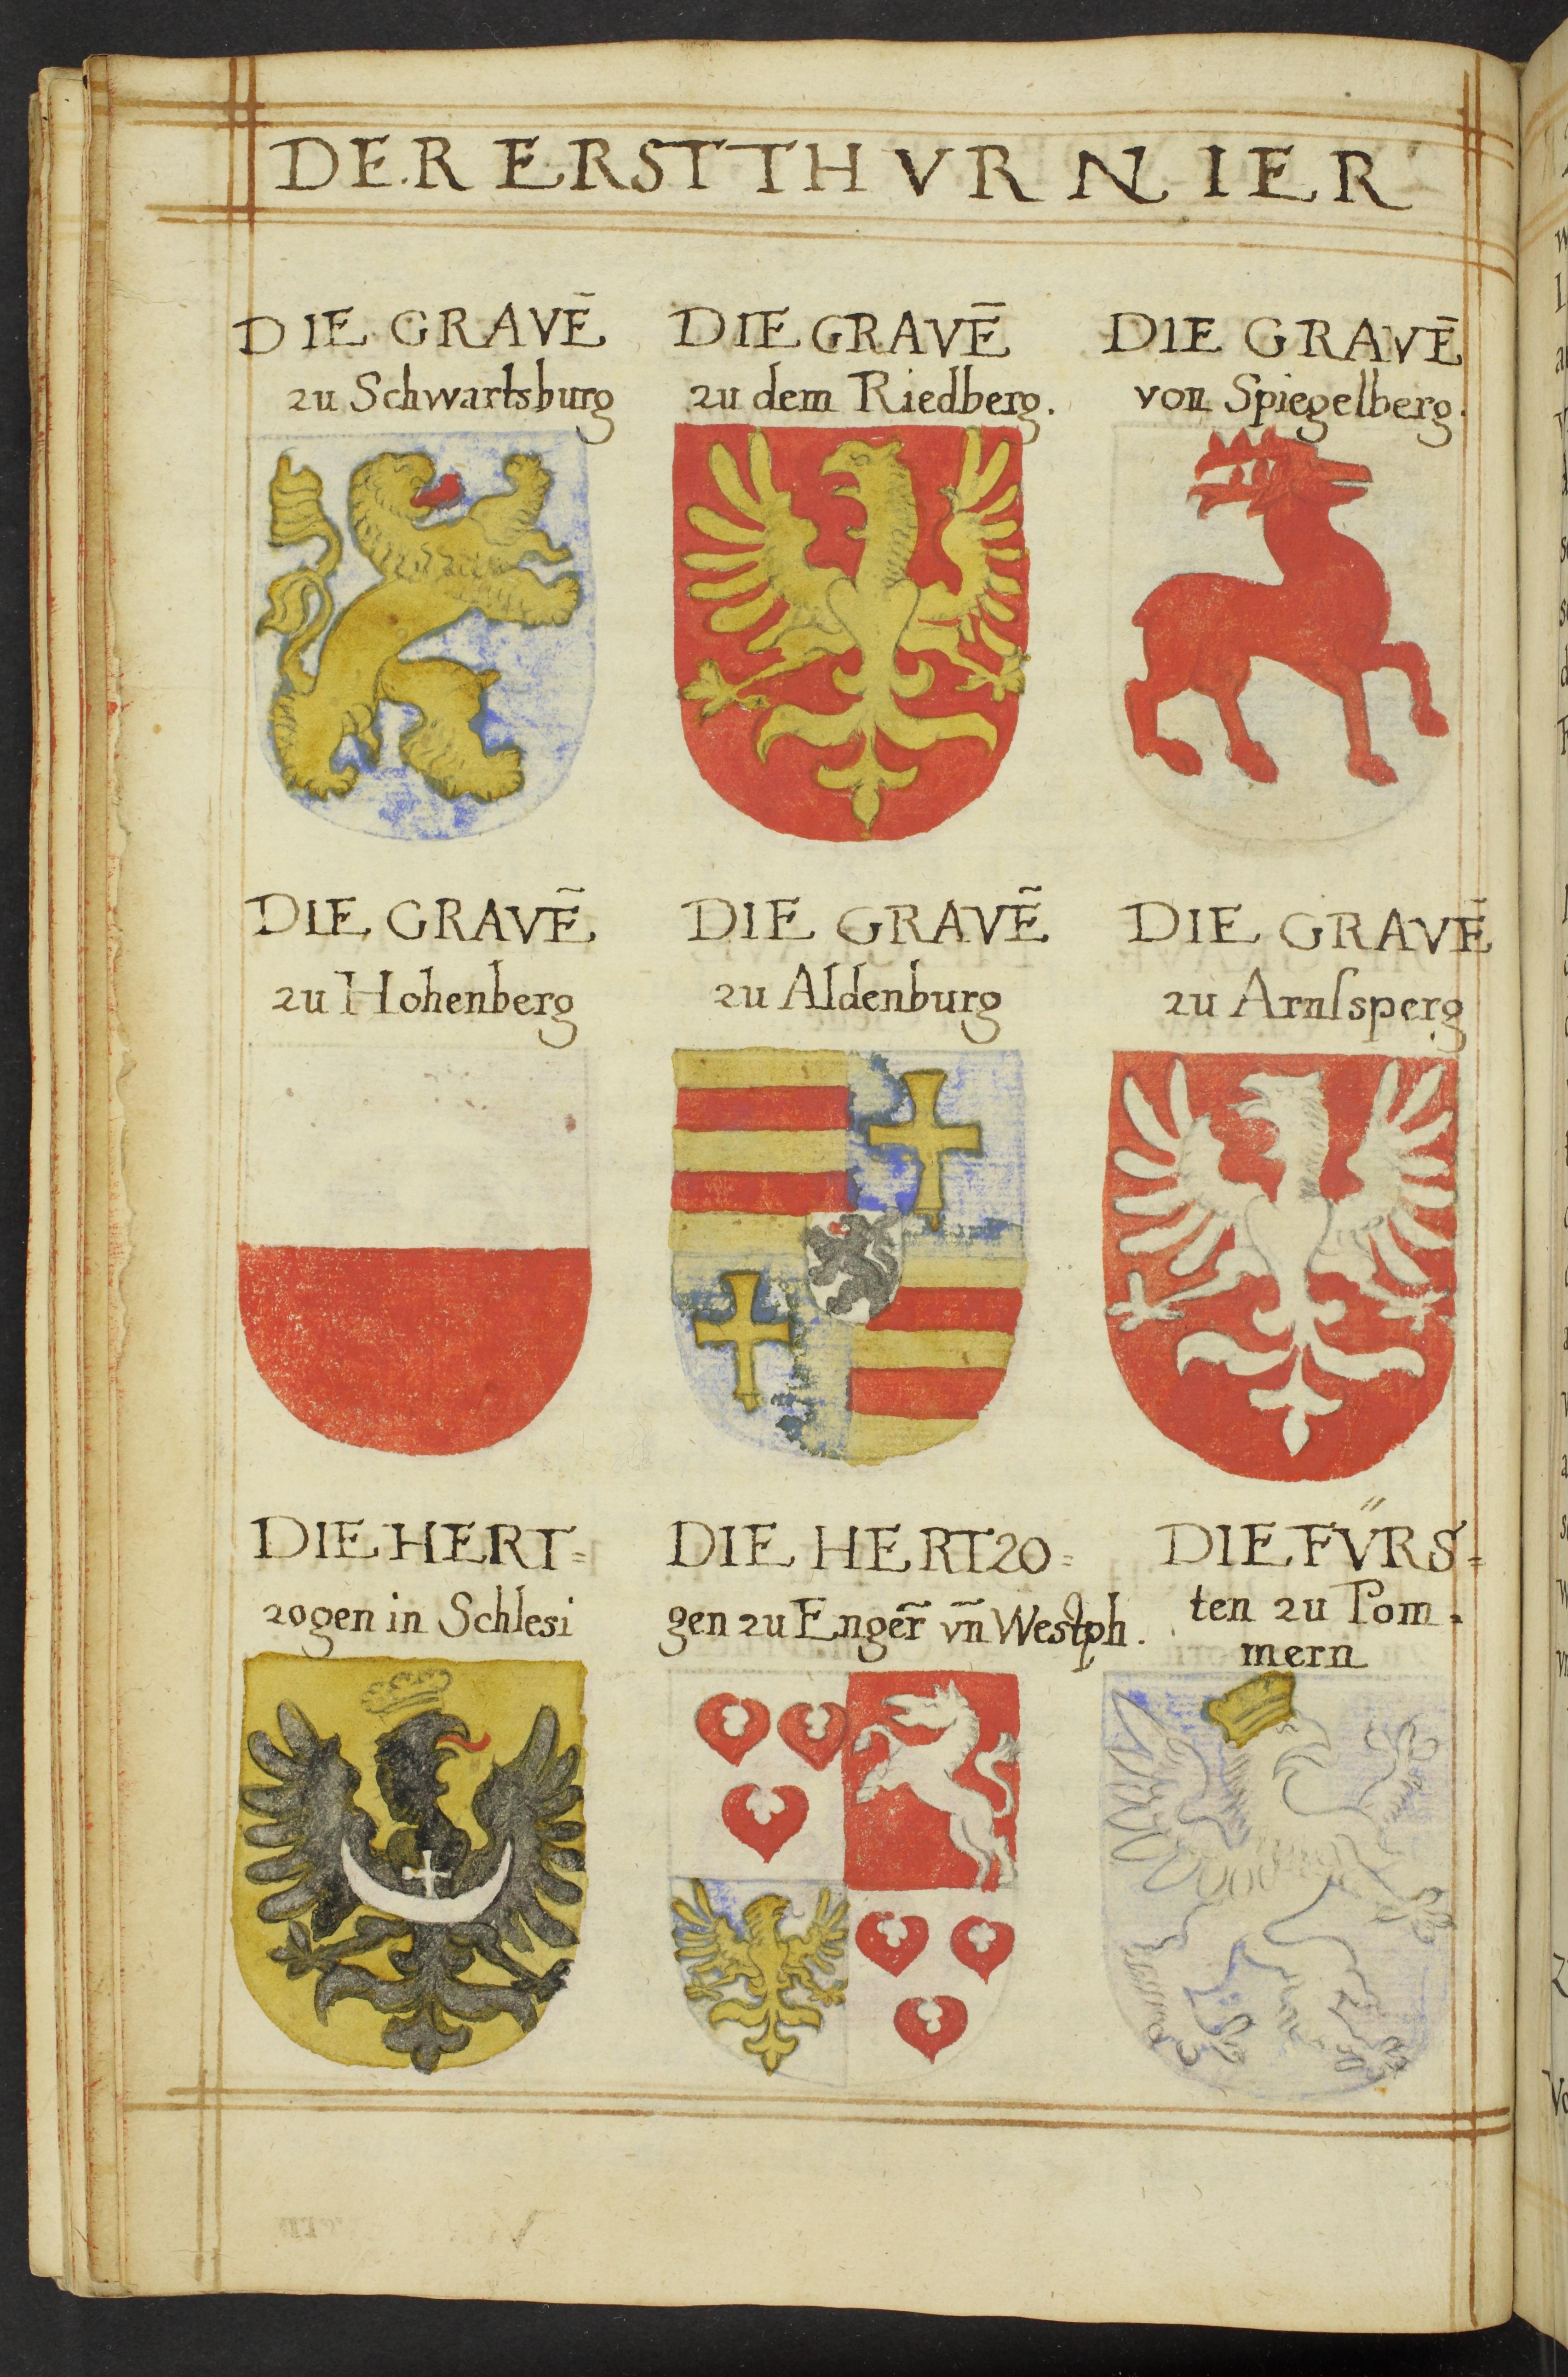 DER ERST THVRNIER
DIE GRAVẼ
zu Schwartsburg
DIE GRAVẼ
zu dem Riedberg.
DIE GRAVẼ
von Spiegelberg.
DIE GRAVẼ
zu Hohenberg
DIE GRAVẼ
zu Aldenburg
DIE GRAVẼ
zu Arnſsperg
DIE HERT=
zogen in Schlesi
DIE HERTZO=
gen zu Enger̃ vñ Westph.
DIE FV̈RS=
ten zu Pom=
mern